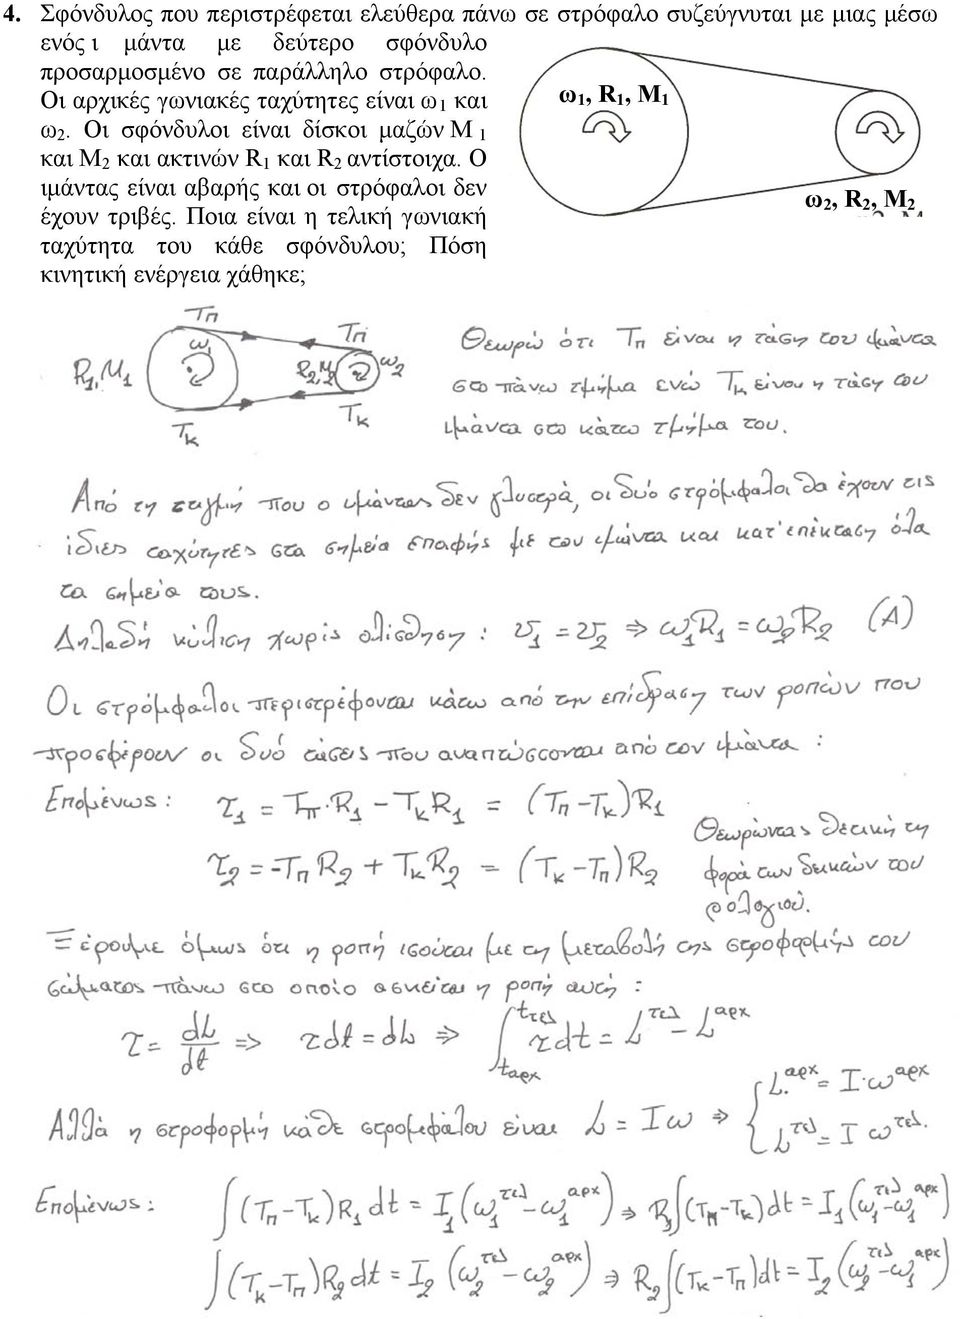 4. Σφόνδυλος που περιστρέφεται ελεύθερα πάνω σε στρόφαλο συζεύγνυται με μιας μέσω
ενός ι μάντα με δεύτερο σφόνδυλο
προσαρμοσμένο σε παράλληλο στρόφαλο.
Οι αρχικές γωνιακές ταχύτητες είναι ω1 και
ω2. Οι σφόνδυλοι είναι δίσκοι μαζών Μ 1
και Μ2 και ακτινών R1 και R2 αντίστοιχα. Ο
ιμάντας είναι αβαρής και οι στρόφαλοι δεν
έχουν τριβές. Ποια είναι η τελική γωνιακή
ταχύτητα του κάθε σφόνδυλου; Πόση
κινητική ενέργεια χάθηκε;
ω1, R1, M1
ω2, R2, M2
Tπ
Tπ
R1, M1
ω1
R2, M2
ω2
Tκ
Tκ
Θεωρώ ότι Tπ είναι η τάση του ιμάντα
στο πάνω τμήμα ενώ Tκ είναι η τάση του
ιμάντα στο κάτω τμήμα του.
Από τη στιγμή που ο ιμάντας δεν γλυστρά, οι δυό στρόμφαλοι θα έχουν τις
ίδιες ταχύτητες στα σημεία επαφής με τον ιμάντα και κατ' επέκταση όλα
τα σημεία τους.
Δηλαδή κύλιση χωρίς ολίσθηση: υ1 = υ2 ⇒ ω1R1 = ω2R2 (A)
Οι στρόμφαλοι περιστρέφονται κάτω από την επίδραση των ροπών που
προσφέρουν οι δυό τάσεις που αναπτύσσονται από τον ιμάντα:
Επομένως: τ1 = Tπ·R1 - TκR1 = (Tπ - Tκ)R1
τ2 = -TπR2 + TκR2 = (Tκ - Tπ)R2
Θεωρώντας θετική τη
φορά των δεικτών του
ρολογιού.
Ξέρουμε όμως ότι η ροπή ισούται με τη μεταβολή της στροφορμής του
σώματος πάνω στο οποίο ασκείται η ροπή αυτή:
τ = dL/dt ⇒ τdt = dL ⇒ ∫_{tαρχ}^{tτελ} τdt = L^τελ - L^αρχ
Αλλά η στροφορμή κάθε στρομφάλου είναι L = Iω ⇒ { L^αρχ = I·ω^αρχ
L^τελ = I ω^τελ.
Επομένως: ∫(Tπ - Tκ)R1 dt = I1(ω1^τελ - ω1^αρχ) ⇒ R1∫(Tπ - Tκ)dt = I1(ω1^τελ - ω1^αρχ)
∫(Tκ - Tπ)R2 dt = I2(ω2^τελ - ω2^αρχ) ⇒ R2∫(Tκ - Tπ)dt = I2(ω2^τελ - ω2^αρχ)